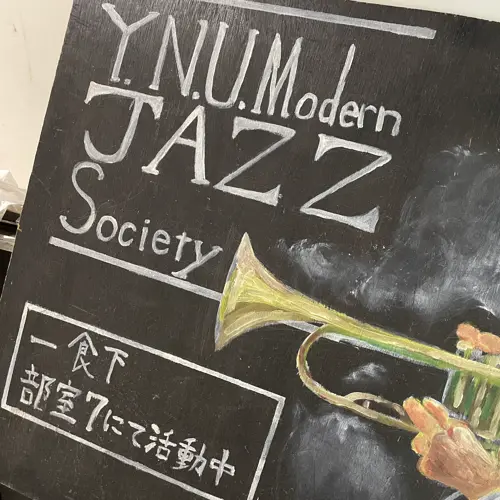 Y.N.U.Modern
JAZZ
Society
一食下
部室7にて活動中